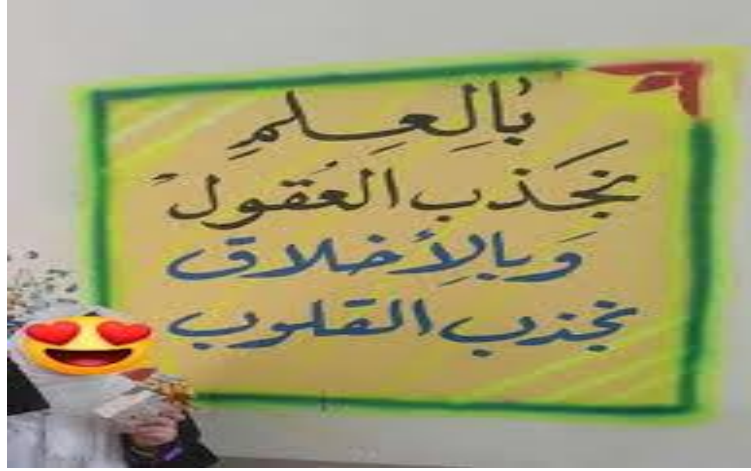 بُالِعِلمِ
نجَذب العُقول
وَبالِأخلاق
نجذب القلوب